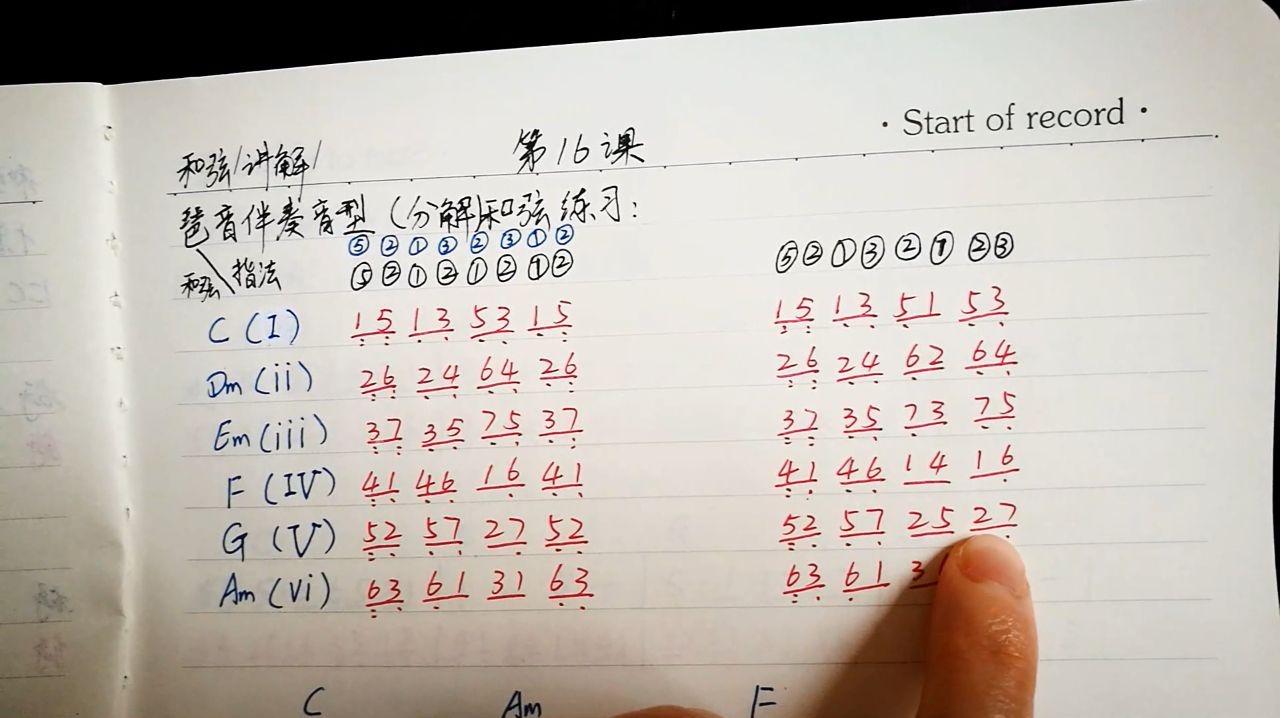 · Start of record ·
和弦/讲解/ 第16课
琶音伴奏音型(分解)和弦练习:
⑤②①③②③①②
和弦 指法 ⑤②①②①②①② ⑤②①③②①②③
C (I) 15 13 53 15 15 13 51 53
Dm (ii) 26 24 64 26 26 24 62 64
Em (iii) 37 35 75 37 37 35 73 75
F (IV) 41 46 16 41 41 46 14 16
G (V) 52 57 27 52 52 57 25 27
Am (vi) 63 61 31 63 63 61 3
C Am F